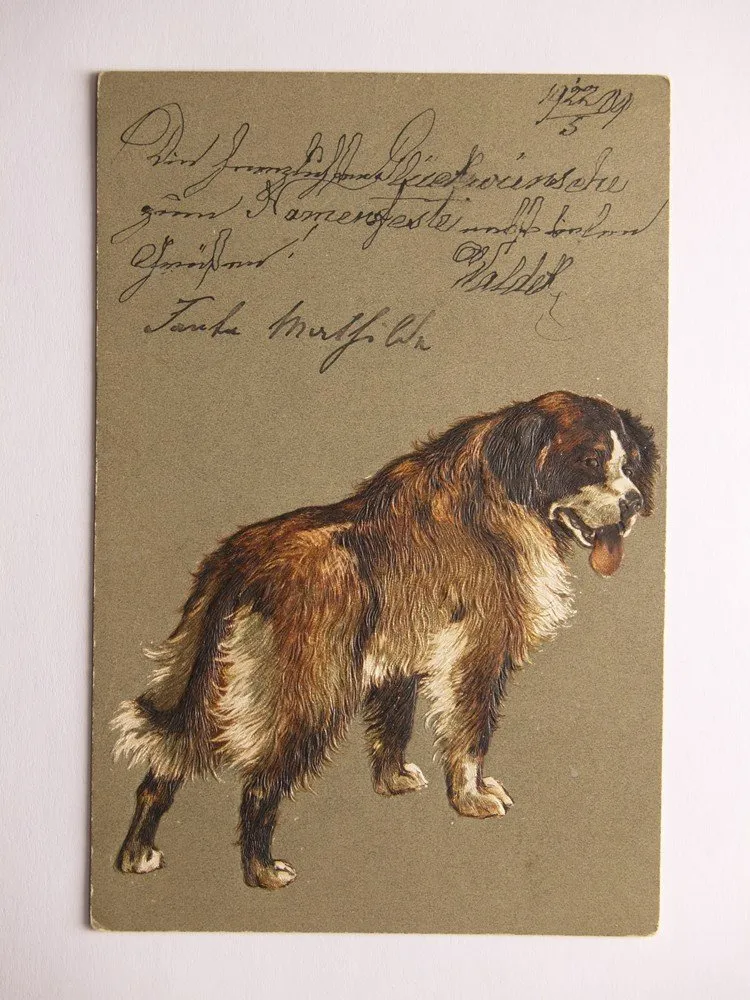 19 22/5 09
Die herzlichsten Glückwünsche
zum Namensfeste nebst vielen
Grüßen!
Tante Mathilde